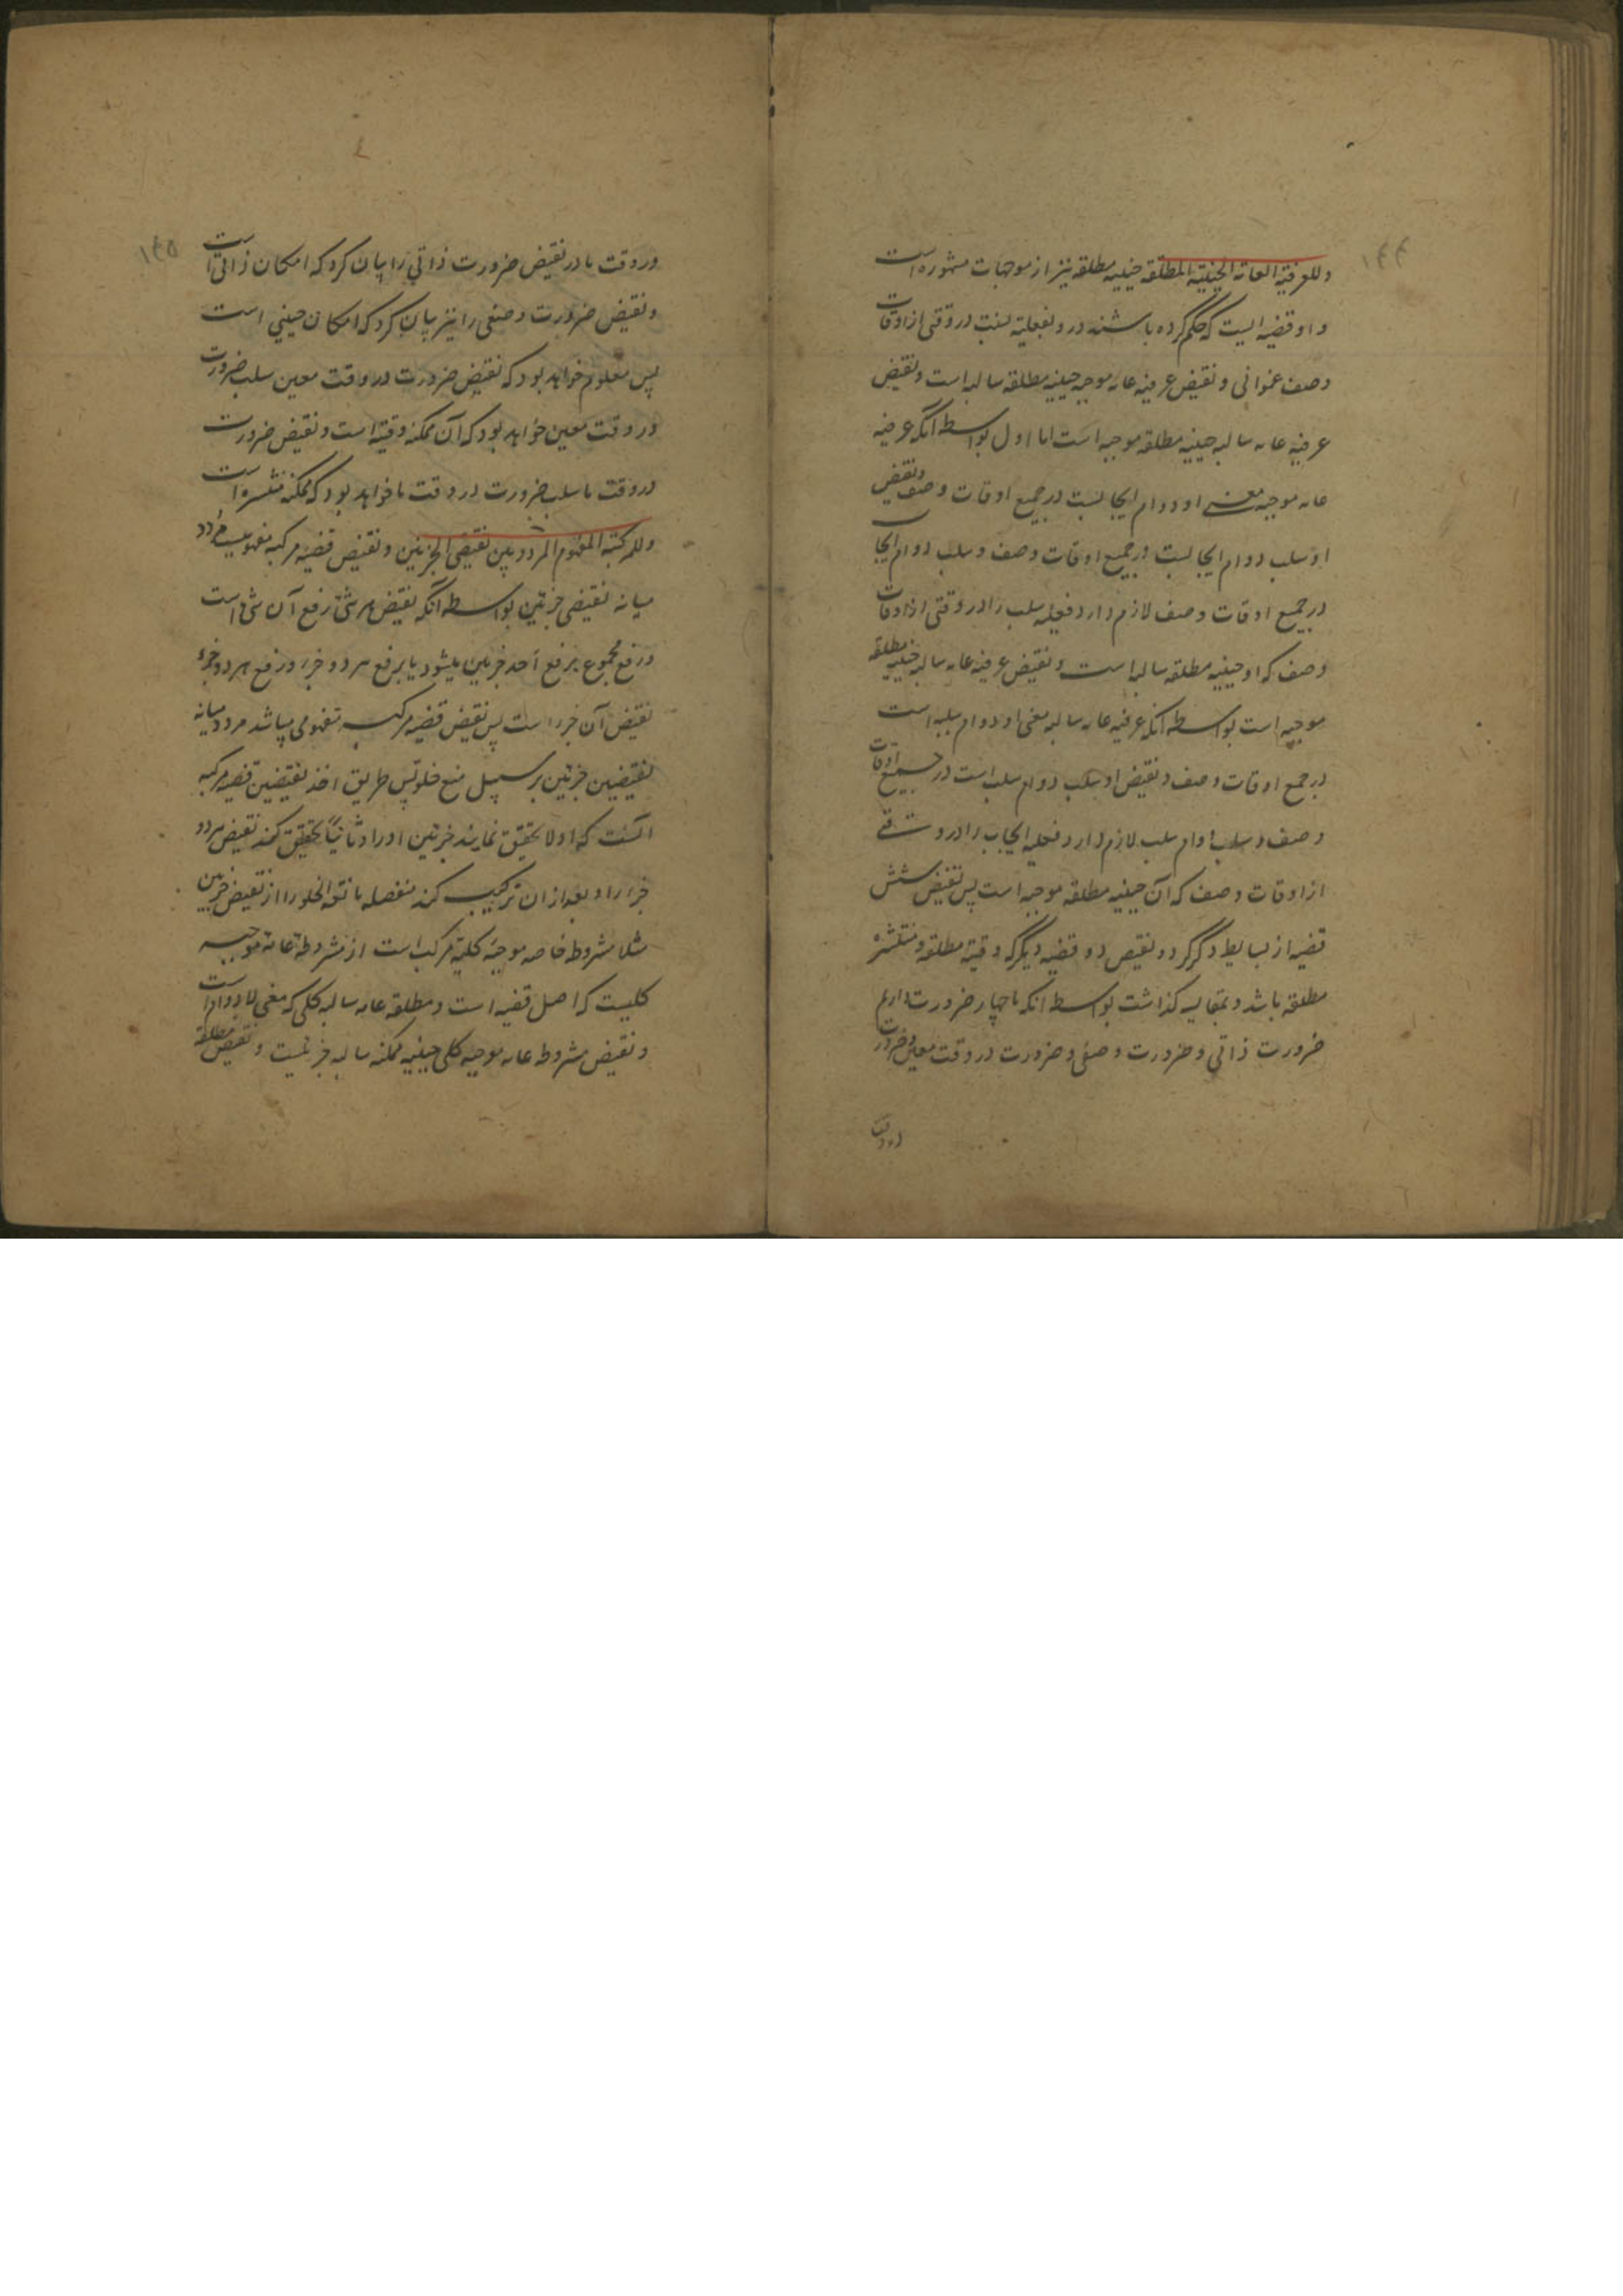 ۱۴۴
وللعرفیة العامة الحینیة المطلقة حینیه مطلقه نیز از موجهات مشهوره است
و او قضیه ایست که حکم کرده باشند درو بفعلیة نسبت در وقتی از اوقات
وصف عنوانی و نقیض عرفیه عامه موجبه حینیه مطلقه سالبه است و نقیض
عرفیه عامه سالبه حینیه مطلقه موجبه است اما اول بواسطه آنکه عرفیه
عامه موجبه معنی او دوام ایجابست در جمیع اوقات وصف و نقیض
او سلب دوام ایجابست در جمیع اوقات وصف و سلب دوام ایجا
در جمیع اوقات وصف لازم دارد فعلیه سلب را در وقتی از اوقات
وصف که او حینیه مطلقه سالبه است و نقیض عرفیه عامه سالبه حینیه مطلقه
موجبه است بواسطه آنکه عرفیه عامه سالبه معنی او دوام سلبه است
در جمع اوقات وصف و نقیض او سلب دوام سلب است در جمیع اوقات
وصف و سلب دوام سلب لازم دارد فعلیه ایجاب را در وقتی
از اوقات وصف که آن حینیه مطلقه موجبه است پس نقیض شش
قضیه از بسایط ذکر کرد و نقیض دو قضیه دیگر که وقتیه مطلقه و منتشره
مطلقه باشد و بمقایسه گذاشت بواسطه انکه ما چهار ضرورت داریم
ضرورت ذاتی و ضرورت وصفی و ضرورت در وقت معین و ضرورت
در وقت
۱۴۵
در وقت ما در نقیض ضرورت ذاتی را بیان کرد که امکان ذاتی است
و نقیض ضرورت وصفی را نیز بیان کرد که امکان حینی است
پس معلوم خواهد بود که نقیض ضرورت در وقت معین سلب ضرورت
در وقت معین خواهد بود که آن ممکنه وقتیه است و نقیض ضرورت
در وقت ما سلب ضرورت در وقت ما خواهد بود که ممکنه منتشره است
وللمرکبة المفهوم المردد بین نقیضی الجزئین و نقیض قضیه مرکبه مفهومیست مردد
میانه نقیضی جزئین بواسطه آنکه نقیض هر شئ رفع آن شئ است
و رفع مجموع برفع احد جزئین میشود یا برفع هر دو جزء و رفع هر دو جزء
نقیض آن جزء است پس نقیض قضیه مرکبه مفهومی میباشد مردد میانه
نقیضین جزئین بر سبیل منع خلو پس طریق اخذ نقیضین قضیه مرکبه
آنست که اولا تحقیق نمایند جزئین او را و ثانیاً تحقیق کنند نقیض هر دو
جزء را و بعد از ان ترکیب کنند منفصله مانعة الخلو را از نقیض جزئین
مثلا مشروطه خاصه موجبه کلیه مرکب است از مشروطه عامه موجبه
کلیت که اصل قضیه است و مطلقه عامه سالبه کلی که معنی لادوام است
و نقیض مشروطه عامه موجبه کلی حینیه ممکنه سالبه جزئیست و نقیض مطلقه